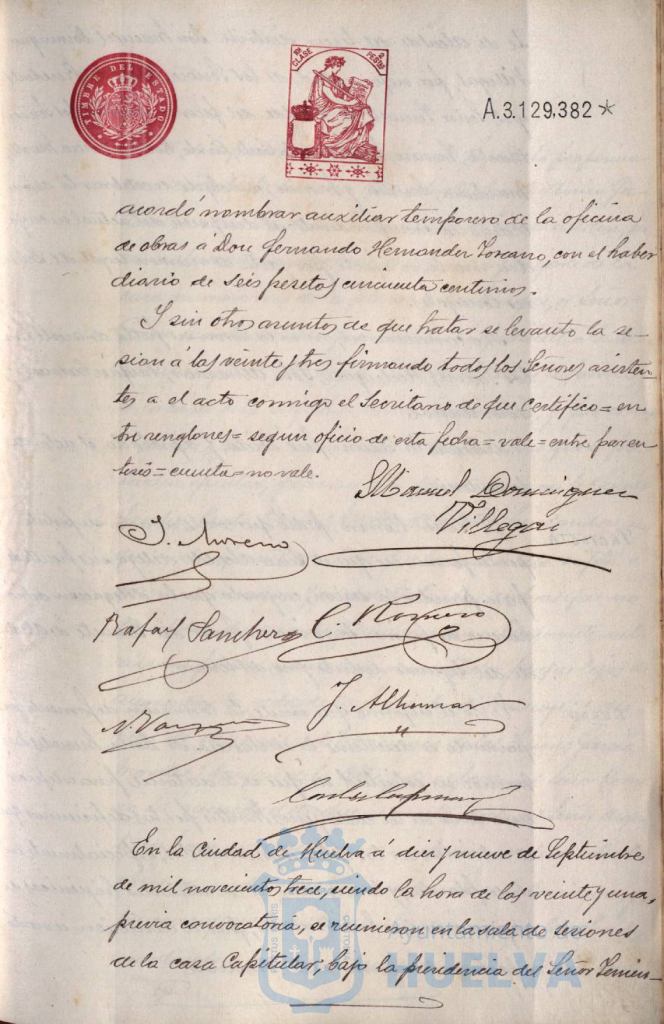 TIMBRE DEL ESTADO
8ª CLASE
2 PESETAS
A.3.129,382*
acordó nombrar auxiliar temporero de la oficina
de obras á Don Fernando Hernandez Toscano, con el haber
diario de seis pesetas cincuenta centimos.
Y sin otros asuntos de que tratar se levanto la se-
sion á las veinte y tres firmando todos los Señores asisten-
tes a el acto conmigo el Secretario de que certifico = en
tre renglones = segun oficio de esta fecha = vale = entre paren
tesis = cuenta = no vale.
Manuel Dominguez
Villegas
J. Moreno
Rafael Sanchez
C. Romero
J. Alhumar
En la Ciudad de Huelva á diez y nueve de Septiembre
de mil novecientos trece, siendo la hora de las veinte y una,
previa convocatoria, se reunieron en la sala de sesiones
de la casa Capitular, bajo la presidencia del Señor Tenien-
Ayuntamiento
HUELVA